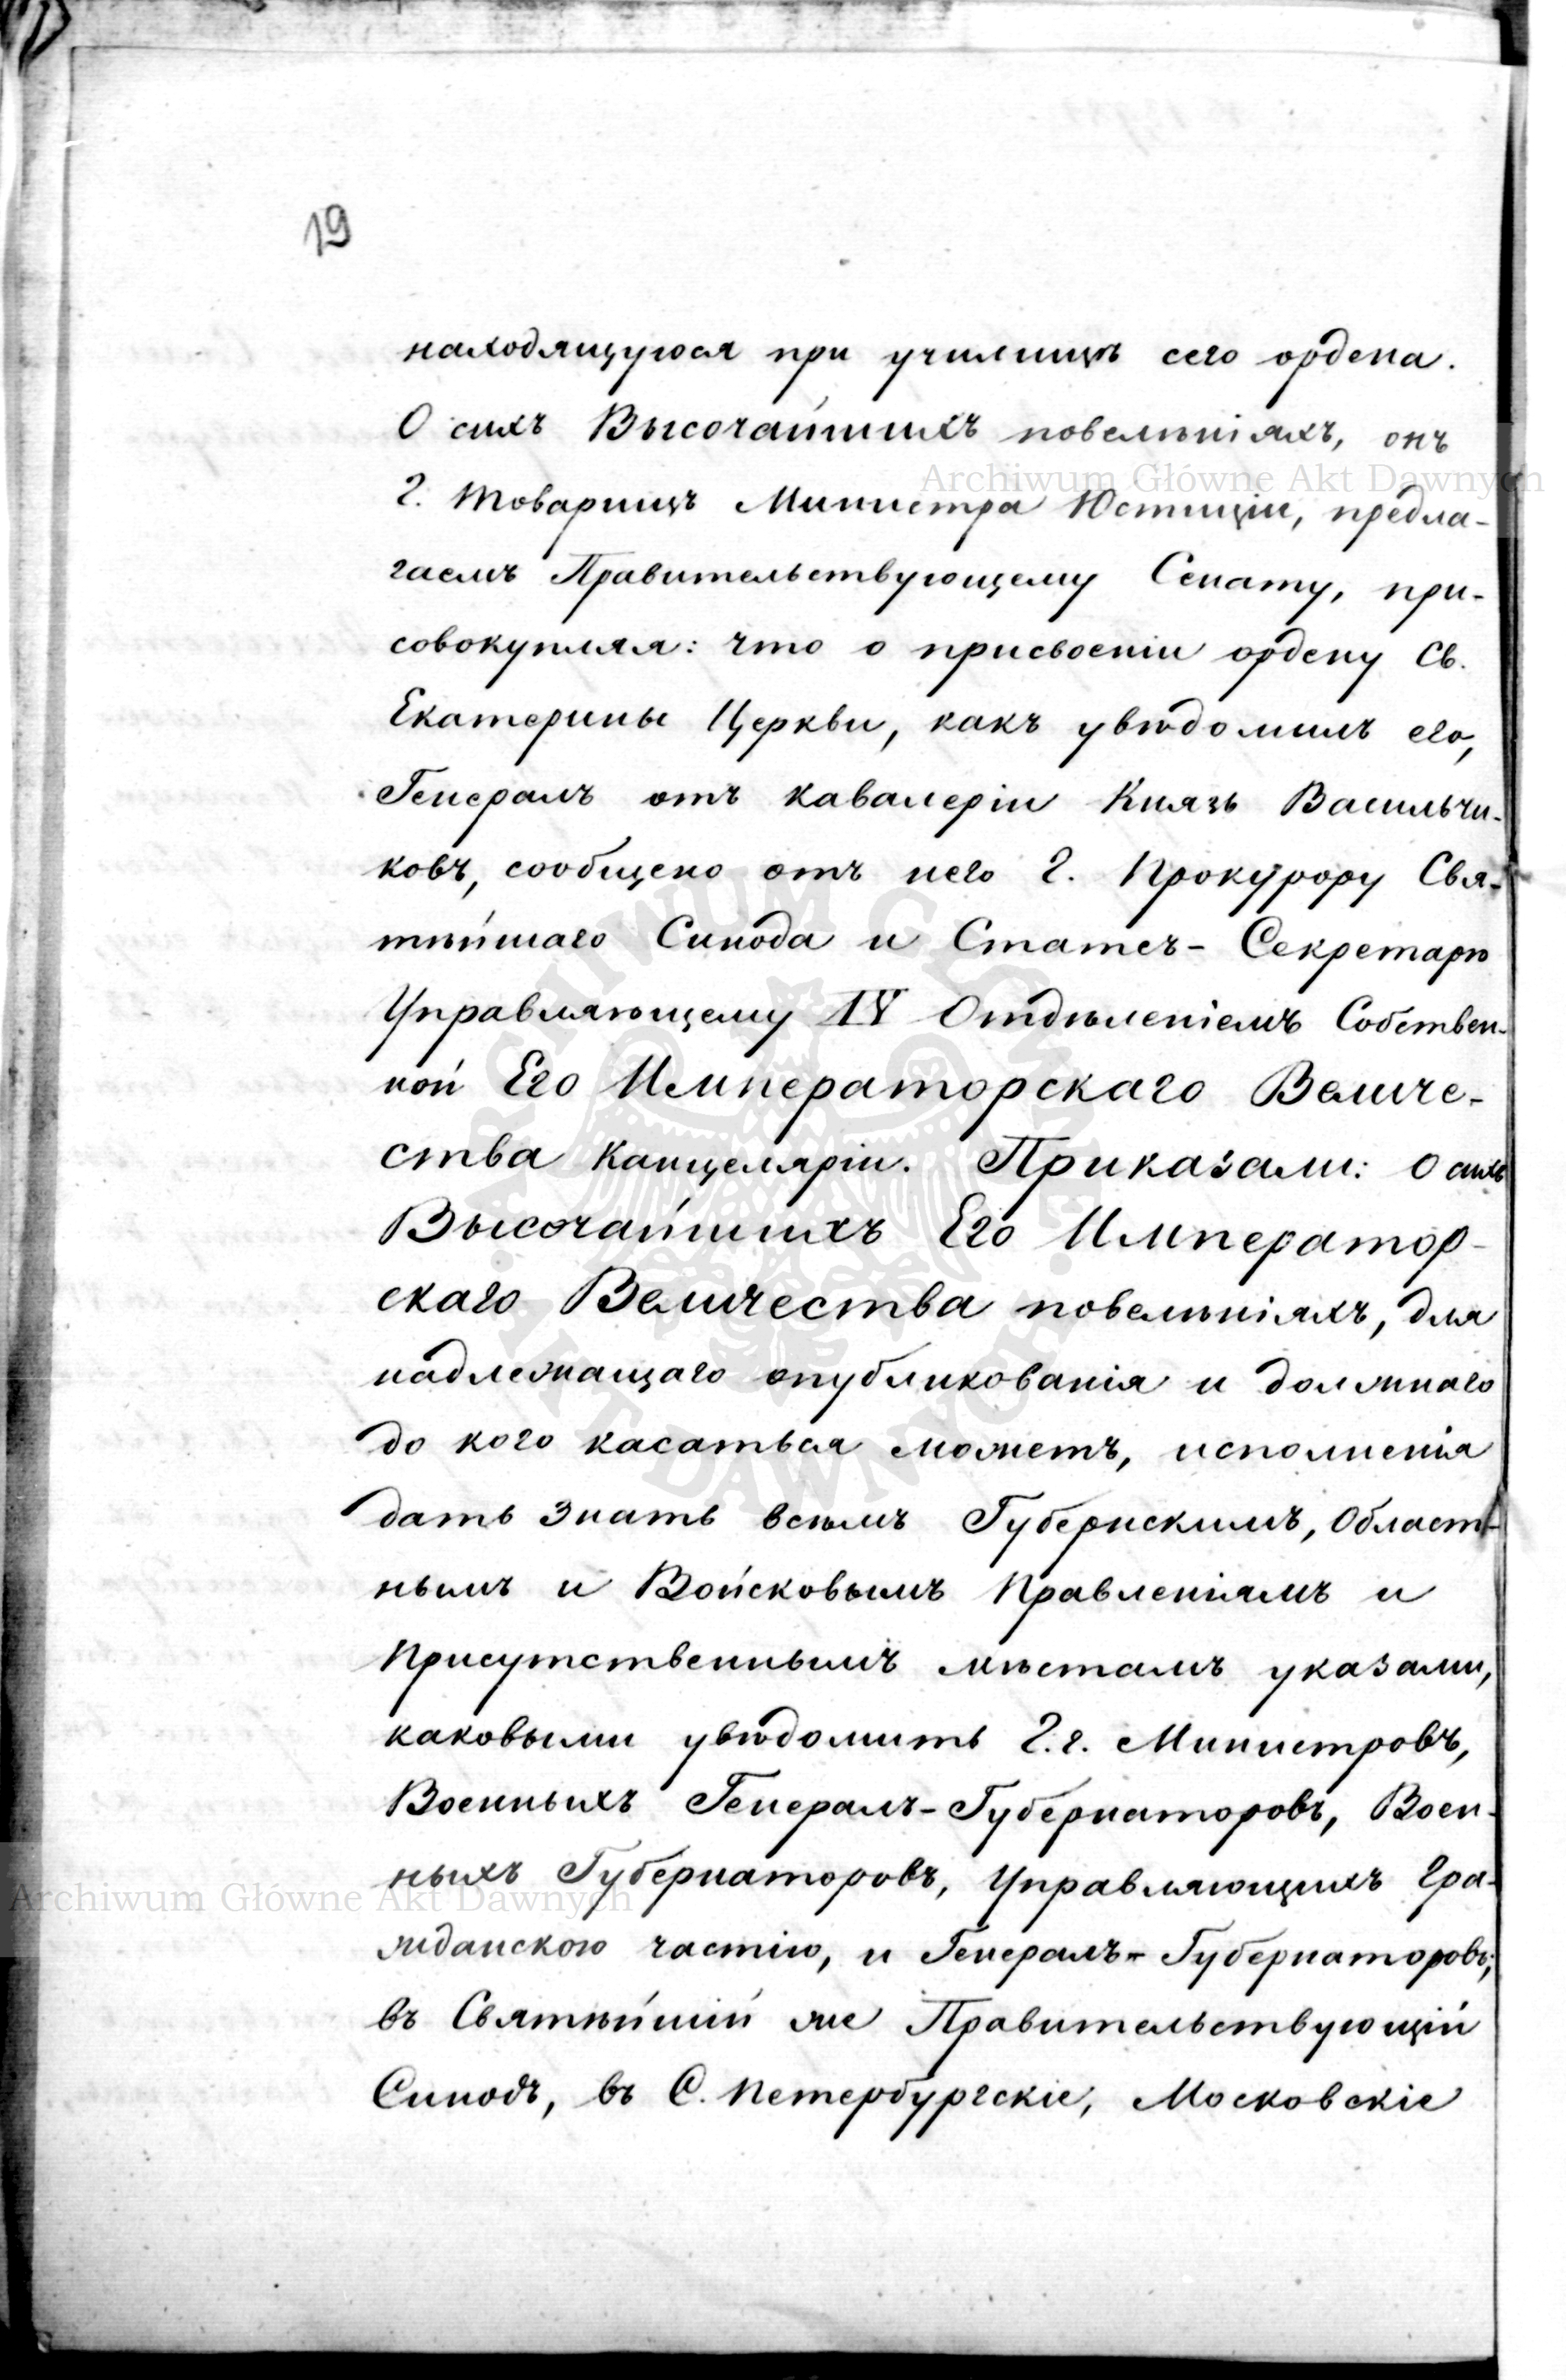 19
находящуюся при училищѣ сего ордена.
О сихъ Высочайшихъ повелѣніяхъ, онъ
Г. Товарищъ Министра Юстиціи, предла-
гаетъ Правительствующему Сенату, при-
совокупляя: что о присвоеніи ордену Св.
Екатерины Церкви, какъ увѣдомилъ его,
Генералъ отъ кавалеріи Князь Васильчи-
ковъ, сообщено отъ него Г. Прокурору Свя-
тѣйшаго Синода и Статсъ-Секретарю
Управляющему IV Отдѣленіемъ Собствен-
ной Его Императорскаго Величе-
ства Канцеляріи. Приказали: О сихъ
Высочайшихъ Его Император-
скаго Величества повелѣніяхъ, для
надлежащаго опубликованія и должнаго
до кого касаться можетъ, исполненія
дать знать всѣмъ Губернскимъ, Област-
нымъ и Войсковымъ Правленіямъ и
Присутственнымъ мѣстамъ указами,
каковыми увѣдомить Г.г. Министровъ,
Военныхъ Генералъ-Губернаторовъ, Воен-
ныхъ Губернаторовъ, Управляющихъ Гра-
жданскою частію, и Генералъ-Губернаторовъ;
въ Святѣйшій же Правительствующій
Синодъ, въ С. Петербургскіе, Московскіе
Archiwum Główne Akt Dawnych
Archiwum Główne Akt Dawnych
ARCHIWUM GŁÓWNE AKT DAWNYCH